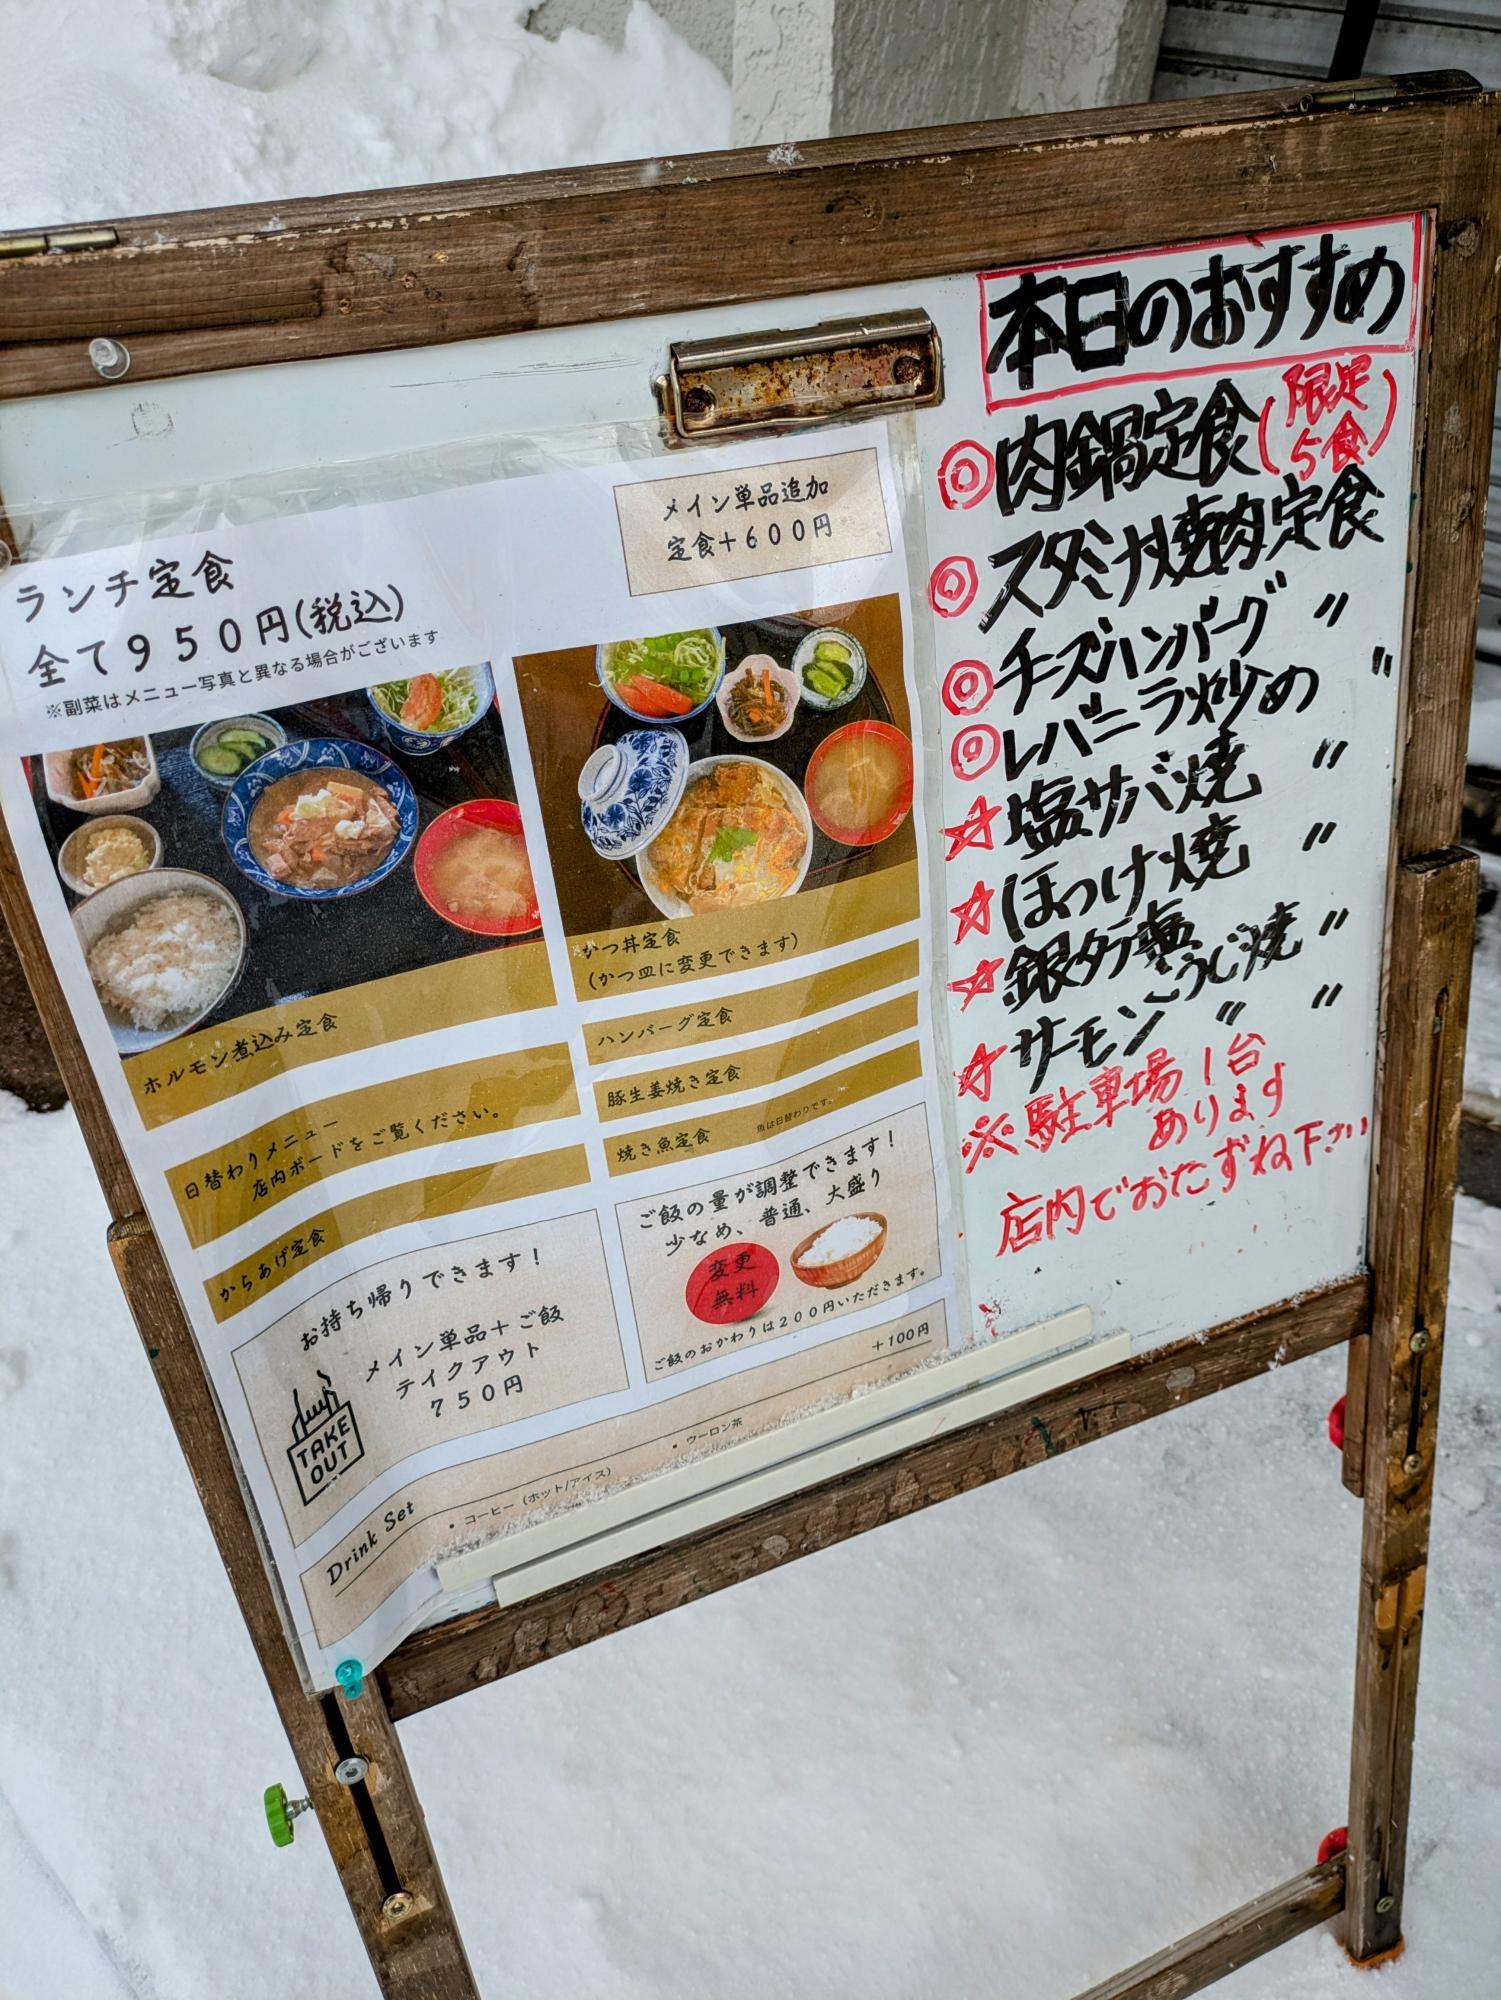 ランチ定食
全て950円(税込)
※副菜はメニュー写真と異なる場合がございます
メイン単品追加
定食+600円
ホルモン煮込み定食
日替わりメニュー
店内ボードをご覧ください。
からあげ定食
かつ丼定食
(かつ皿に変更できます)
ハンバーグ定食
豚生姜焼き定食
焼き魚定食 魚は日替わりです。
お持ち帰りできます!
メイン単品+ご飯
テイクアウト
750円
TAKE
OUT
ご飯の量が調整できます!
少なめ、普通、大盛り
変更
無料
ご飯のおかわりは200円いただきます。
Drink Set +100円
・コーヒー(ホット/アイス) ・ウーロン茶
本日のおすすめ
◎肉鍋定食(限定
5食)
◎スタミナ焼肉定食
◎チーズハンバーグ 〃
◎レバニラ炒め 〃
☆塩サバ焼 〃
☆ほっけ焼 〃
☆銀ダラ塩こうじ焼 〃
☆サーモン 〃 〃
※駐車場1台
あります
店内でおたずね下さい